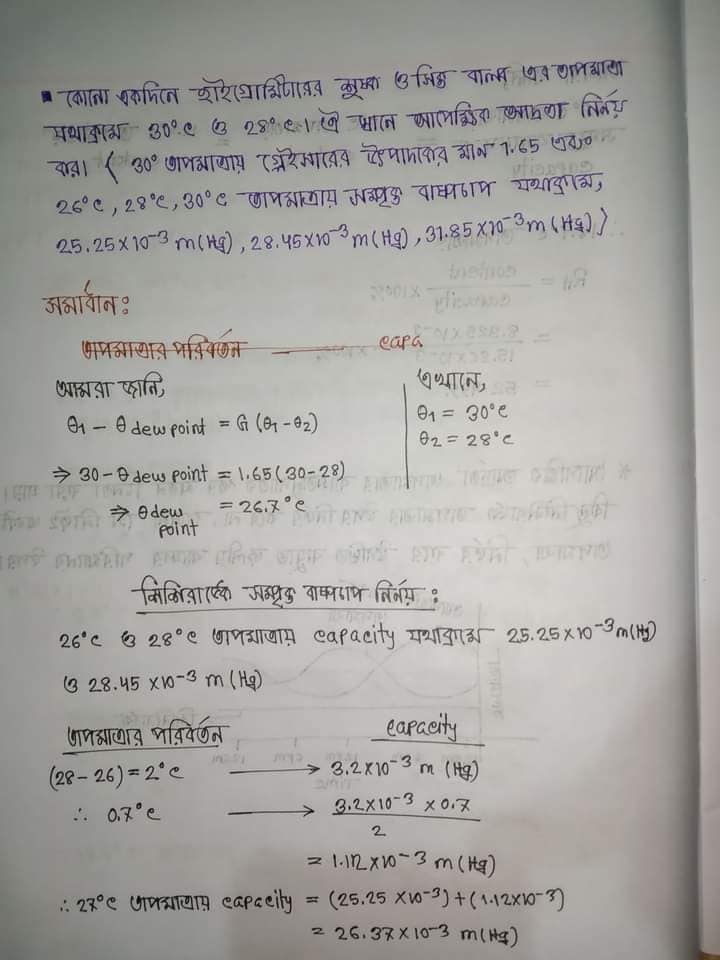 ▪ কোনো একদিনে হাইগ্রোমিটারের শুষ্ক ও সিক্ত বাল্ব এর তাপমাত্রা
যথাক্রমে 30°c ও 28°c। ঐ স্থানে আপেক্ষিক আদ্রতা নির্নয়
কর। ( 30° তাপমাত্রায় গ্লেইসারের উৎপাদকের মান 1.65 এবং
26°c, 28°c, 30°c তাপমাত্রায় সম্পৃক্ত বাষ্পচাপ যথাক্রমে,
25.25×10⁻³ m(Hg), 28.45×10⁻³ m(Hg), 31.85×10⁻³ m(Hg))
সমাধান:
তাপমাত্রার পরিবর্তন capa
আমরা জানি,
θ₁ − θ dew point = G (θ₁−θ₂)
এখানে,
θ₁ = 30°c
θ₂ = 28°c
⇒ 30 − θ dew point = 1.65(30−28)
⇒ θ dew point = 26.7°c
শিশিরাঙ্কে সম্পৃক্ত বাষ্পচাপ নির্নয়:
26°c ও 28°c তাপমাত্রায় capacity যথাক্রমে 25.25×10⁻³ m(Hg)
ও 28.45×10⁻³ m(Hg)
তাপমাত্রার পরিবর্তন capacity
(28−26)=2°c ⟶ 3.2×10⁻³ m (Hg)
∴ 0.7°c ⟶ 3.2×10⁻³ × 0.7
2
= 1.12×10⁻³ m(Hg)
∴ 27°c তাপমাত্রায় capacity = (25.25×10⁻³)+(1.12×10⁻³)
= 26.37×10⁻³ m(Hg)